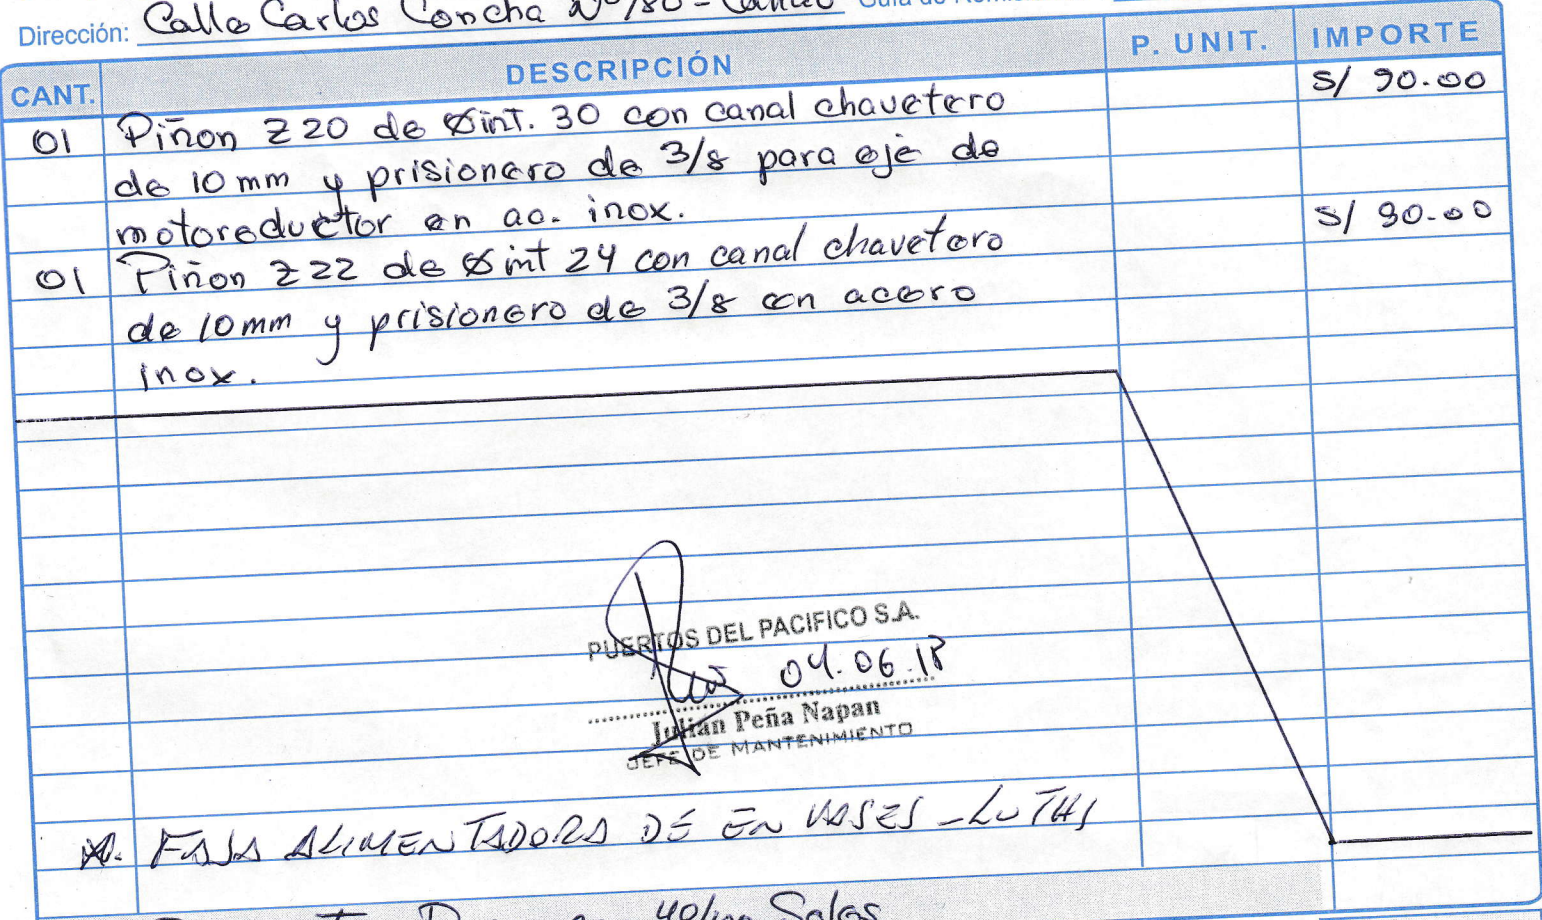 Dirección: Calle Carlos Concha Nº 180 - Callao
CANT. DESCRIPCIÓN P. UNIT. IMPORTE
01 Piñon Z20 de Øint. 30 con canal chavetero S/ 90.00
de 10 mm y prisionero de 3/8 para eje de
motoreductor en ac. inox.
01 Piñon Z22 de Øint 24 con canal chavetero S/ 90.00
de 10mm y prisionero de 3/8 en acero
inox.
PUERTOS DEL PACIFICO S.A.
04.06.18
Julian Peña Napan
JEFE DE MANTENIMIENTO
FAJA ALIMENTADORA DE ENVASES - LUTHI